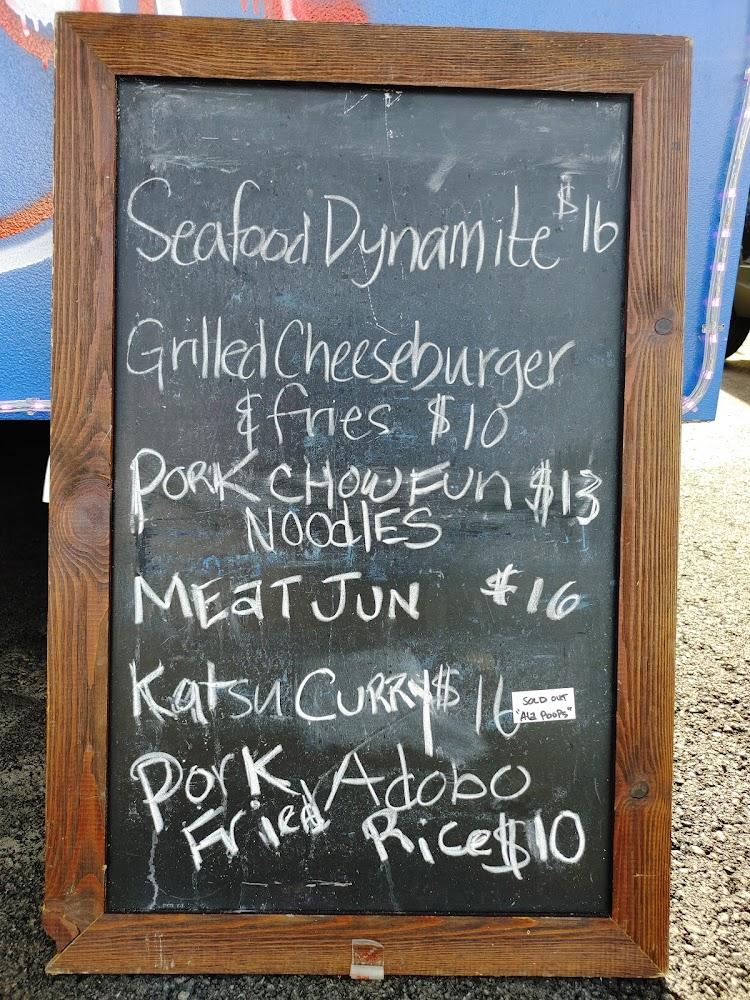 Seafood Dynamite $16
Grilled Cheeseburger
& fries $10
PORK CHOW FUN $13
NOODLES
MEAT JUN $16
Katsu CURRY $16
SOLD OUT
"Ala POOPS"
Pork Adobo
Fried Rice $10